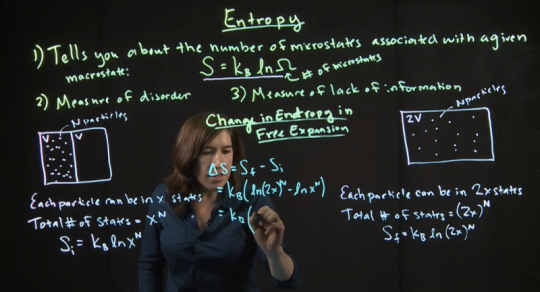 Entropy
1) Tells you about the number of microstates associated with a given
macrostate:
S = k_B ln Ω
# of microstates
2) Measure of disorder
3) Measure of lack of information
N particles
V V
Change in Entropy in
Free Expansion
N particles
2V
ΔS = S_f - S_i
= k_B (ln(2x)^N - ln x^N)
= k_B (
Each particle can be in x states
Total # of states = x^N
S_i = k_B ln x^N
Each particle can be in 2x states
Total # of states = (2x)^N
S_f = k_B ln (2x)^N